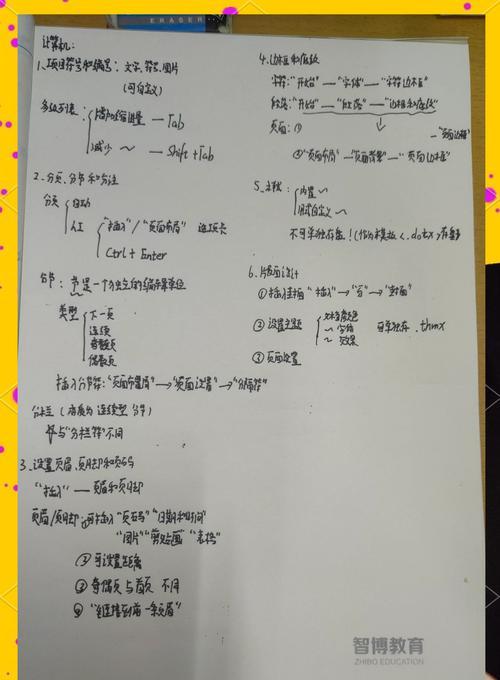 ERASER
计算机:
1、项目符号和编号:文字、符号、图片
(可自定义)
多级列表:
增加缩进量 — Tab
减少 ~ — Shift + Tab
2、分页、分节和分栏
分页
自动
人工 "插入"/"页面布局" 选项卡
Ctrl + Enter
分节:节是一个独立的编排单位
类型
下一页
连续
奇数页
偶数页
插入分节符:"页面布局"→"页面设置"→"分隔符"
分栏 (连续型 分节)
与"分栏符"不同
3、设置页眉、页脚和页码
"插入" — 页眉和页脚
页眉/页脚:可插入"页码" "日期和时间"
"图片" "剪贴画" "表格"
② 可设置距离
③ 奇偶页与首页 不同
④ "链接到前一条页眉"
4、边框和底纹
字符:"开始" — "字体" — "字符边框"
段落:"开始" — "段落" — "边框和底纹"
页面:①
— "页面边框"
②"页面布局" — "页面背景" — "页面边框"
5、
内置 ~
自定义 ~
不可单独存盘!(作为模板 <.dotx> 存盘
6、版面设计
① 插入封面 "插入"→"页"→"封面"
② 设置主题
~ 字体
~ 效果
可单独存 .thmx
③ 页面设置
智博教育
ZHIBO EDUCATION